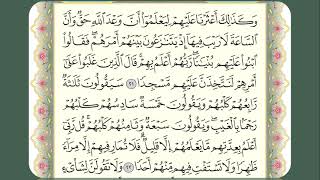 وَكَذَٰلِكَ أَعْثَرْنَا عَلَيْهِمْ لِيَعْلَمُوٓا۟ أَنَّ وَعْدَ ٱللَّهِ حَقٌّ وَأَنَّ
ٱلسَّاعَةَ لَا رَيْبَ فِيهَآ إِذْ يَتَنَٰزَعُونَ بَيْنَهُمْ أَمْرَهُمْ ۖ فَقَالُوا۟
ٱبْنُوا۟ عَلَيْهِم بُنْيَٰنًا ۖ رَّبُّهُمْ أَعْلَمُ بِهِمْ ۚ قَالَ ٱلَّذِينَ غَلَبُوا۟ عَلَىٰٓ
أَمْرِهِمْ لَنَتَّخِذَنَّ عَلَيْهِم مَّسْجِدًا ٢١ سَيَقُولُونَ ثَلَٰثَةٌ
رَّابِعُهُمْ كَلْبُهُمْ وَيَقُولُونَ خَمْسَةٌ سَادِسُهُمْ كَلْبُهُمْ
رَجْمًۢا بِٱلْغَيْبِ ۖ وَيَقُولُونَ سَبْعَةٌ وَثَامِنُهُمْ كَلْبُهُمْ ۚ قُل رَّبِّىٓ
أَعْلَمُ بِعِدَّتِهِم مَّا يَعْلَمُهُمْ إِلَّا قَلِيلٌ ۗ فَلَا تُمَارِ فِيهِمْ إِلَّا مِرَآءً
ظَٰهِرًا وَلَا تَسْتَفْتِ فِيهِم مِّنْهُمْ أَحَدًا ٢٢ وَلَا تَقُولَنَّ لِشَا۟ىْءٍ